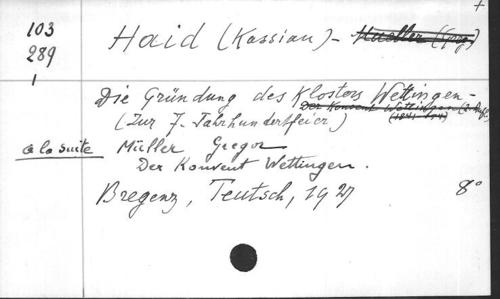 +
103 Haid (Kassian) - Mueller (Greg.)
289
1
Die Gründung des Klosters Wettingen -
Der Konvent Wettingen
(Zur 7. Jahrhundertfeier)
à la suite Müller Gregor
Der Konvent Wettingen.
Bregenz, Teutsch, 1927 8°